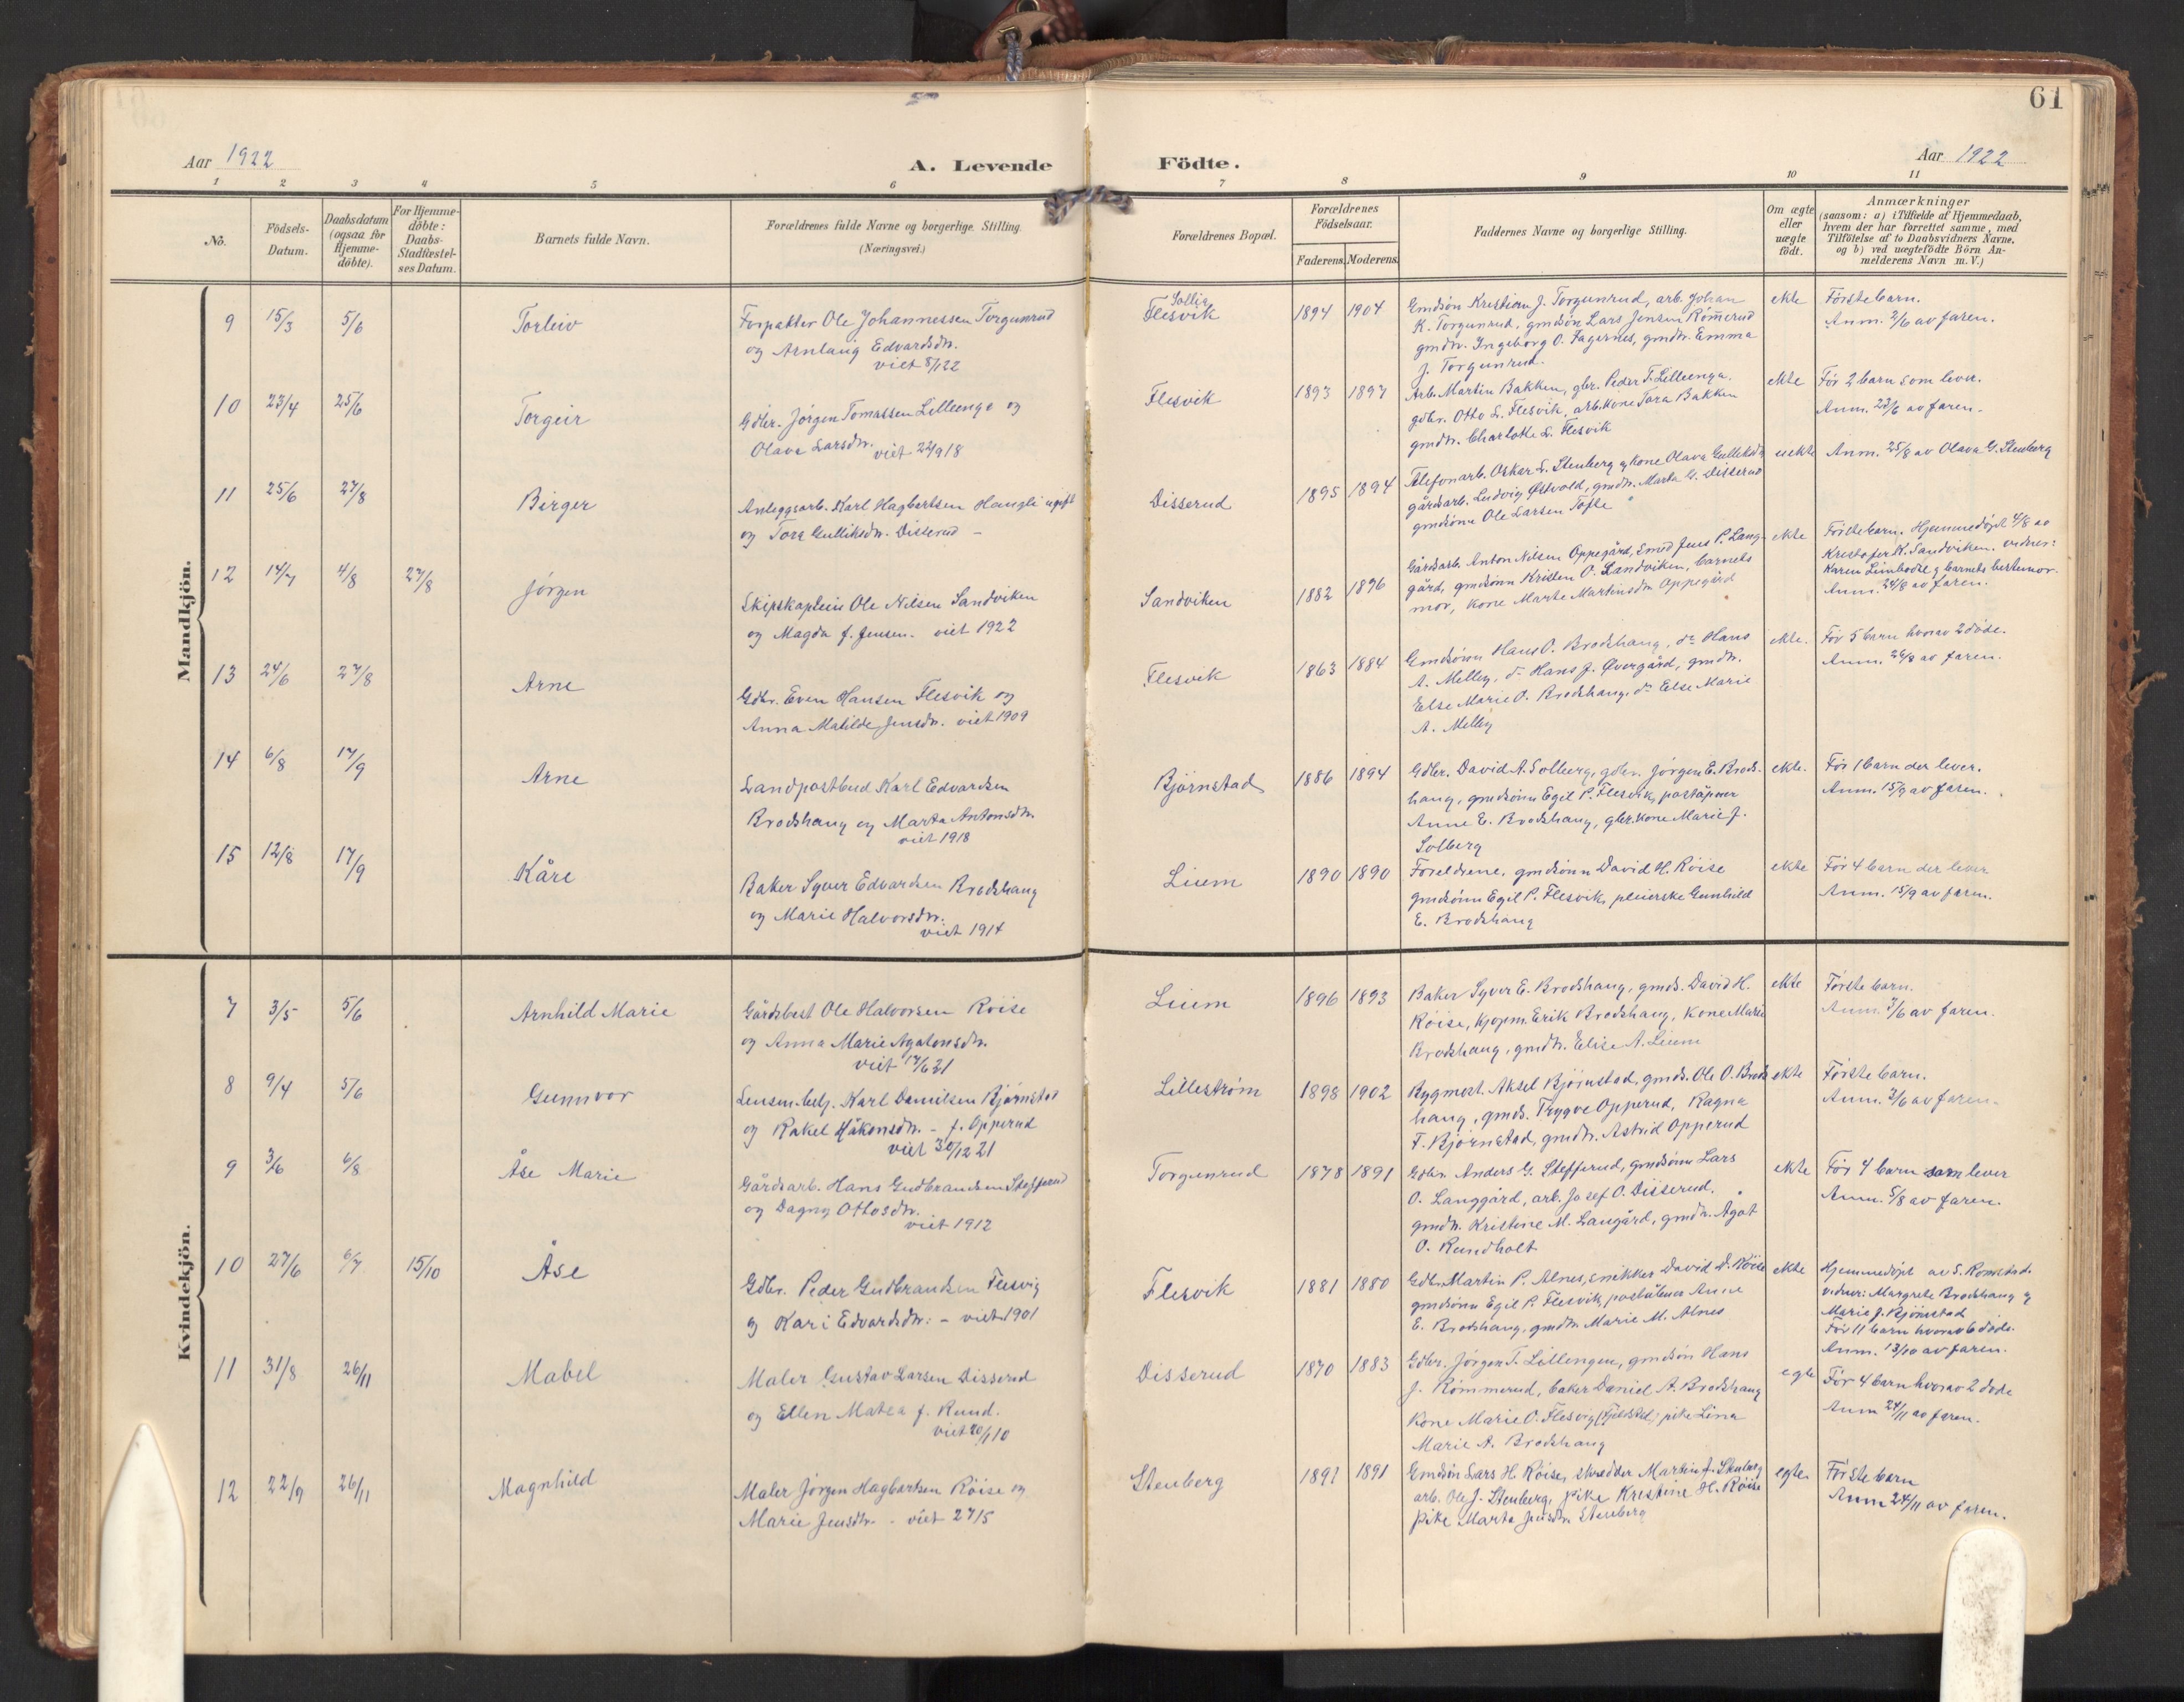 61
Aar 1922
A. Levende Födte.
Aar 1922
1 2 3 4 5 6 7 8 9 10 11
No.
Födsels-Datum.
Daabsdatum (ogsaa for Hjemme-döbte).
For Hjemme-döbte: Daabs-Stadfæstel-ses Datum.
Barnets fulde Navn.
Forældrenes fulde Navne og borgerlige Stilling.
(Næringsvei.)
Forældrenes Bopæl.
Forældrenes Födselsaar.
Faderens. Moderens.
Faddernes Navne og borgerlige Stilling.
Om ægte eller uægte födt.
Anmærkninger
(saasom: a) i Tilfælde af Hjemmedaab,
hvem der har forrettet samme, med
Tilföielse af to Daabsvidners Navne,
og b) ved uægtefödte Börn An-
melderens Navn m. V.)
Mandkjön.
9 15/3 5/6 Torleiv
Forpakter Ole Johannessen Torgunrud
og Arnlaug Edvardsdtr.
viet 8/1 22
Sollia
Flesvik 1894 1904
Gmdsön Kristian J. Torgunrud, arb. Johan
K. Torgunrud, gmdsön Lars Jensen Römerud
gmdtr. Ingeborg O. Fagernes, gmdtr. Emma
J. Torgunrud.
ekte
Förstebarn.
Anm. 2/6 av faren.
10 23/4 25/6 Torgeir
Gdbr. Jörgen Tomassen Lilleenga og
Olava Larsdtr. viet 22/9 18
Flesvik 1893 1897
Arb. Martin Bakken, gbr. Peder T. Lilleenga,
gdbr. Otto L. Flesvik, arb.kone Tora Bakken
gmdtr. Charlotte L. Flesvik
ekte
För 2 barn som lever.
Anm. 23/6 av faren.
11 25/6 27/8 Birger
Anleggsarb. Karl Hagbartsen Haugli ugift
og Tora Gulliksdtr. Disserud -
Disserud 1895 1894
Telefonarb. Oskar L. Stenberg og kone Olava Gulliksdtr
gårdsarb. Ludvig Østvold, gmdtr. Marta G. Disserud
gmdsönn Ole Larsen Tofte
uekte
Anm. 25/8 av Olava G. Stenberg
12 14/7 4/8 27/8 Jörgen
Skipskaptein Ole Nilsen Sandviken
og Magda f. Jensen. viet 1922
Sandviken 1882 1896
Gårdsarb. Anton Nilsen Oppegård, Smed Jens P. Lang-
gård, gmdsönn Kristen O. Sandviken, barnets
mor, kone Marte Martinsdtr Oppegård
ekte
Förstebarn. Hjemmedöpt 4/8 av
Kristofer K. Sandviken. vidner:
Karen og barnets bestemor.
Anm. 24/8 av faren.
13 24/6 27/8 Arne
Gdbr. Even Hansen Flesvik og
Anna Matilde Jensdtr. viet 1909
Flesvik 1863 1884
Gmdsönn Hans O. Brodshaug, do Hans
A. Melby, do Hans J. Övergård, gmdtr.
Else Marie O. Brodshaug, do Else Marie
A. Melby
ekte.
För 5 barn hvorav 2 döde.
Anm. 26/8 av faren.
14 6/8 17/9 Arne
Landpostbud Karl Edvardsen
Brodshaug og Marta Antonsdtr.
viet 1918
Björnstad 1886 1894
Gdbr. David A. Solberg, gdbr. Jörgen E. Brods-
haug, gmdsönn Egil P. Flesvik, poståpner
Anne E. Brodshaug, gbr.kone Marie J.
Solberg
ekte.
För 1 barn der lever.
Anm. 15/9 av faren.
15 12/8 17/9 Kåre
Baker Syver Edvardsen Brodshaug
og Marie Halvorsdtr.
viet 1914
Liiem 1890 1890
Foreldrene, gmdsönn David H. Röise
gmdsönn Egil P. Flesvik, pleierske Gunhild
E. Brodshaug
ekte
För 4 barn der lever
Anm. 15/9 av faren.
Kvindekjön.
7 3/5 5/6 Arnhild Marie
Gårdsbest Ole Halvorsen Röise
og Anna Marie Agatonsdtr.
viet 17/6 21
Liiem 1896 1893
Baker Syver E. Brodshaug, gmds. David H.
Röise, kjopm. Erik Brodshaug, kone Marie
Brodshaug, gmdtr. Elise A. Liiem
ekte
Förstebarn.
Anm. 3/6 av faren.
8 9/4 5/6 Gunnvor
Lensm.betj. Karl Danielsen Björnstad
og Rakel Håkonsdtr. - f. Opperud
viet 30/12 21
Lilleström 1898 1902
Bygmest. Aksel Björnstad, gmds. Ole O. Brods
haug, gmds. Trygve Opperud, Ragna
F. Björnstad, gmdtr. Astrid Opperud
ekte
Förstebarn.
Anm. 3/6 av faren.
9 3/6 6/8 Åse Marie
Gårdsarb. Hans Gudbrandsen Stefferud
og Dagny Ottosdtr.
viet 1912
Torgunrud 1878 1891
Gdbr. Anders G. Stefferud, gmdsönn Lars
O. Langgård, arb. Josef O. Disserud,
gmdtr. Kristine M. Laugård, gmdtr. Ågot
O. Rundholt
ekte
För 4 barn som lever
Anm. 5/8 av faren.
10 27/6 6/7 15/10 Åse
Gdbr. Peder Gudbrandsen Flesvig
og Kari Edvardsdtr: - viet 1901
Flesvik 1881 1880
Gdbr. Martin P. Alnes, snikker David D. Röise
gmdsönn Egil P. Flesvik, poståbner Anne
E. Brodshaug, gmdtr Marie M. Alnes
ekte
Hjemmedöpt av S. Romstad.
vidner: Margrete Brodshaug og
Marie J. Björnstad
För 11 barn hvorav 6 döde.
Anm. 13/10 av faren.
11 31/8 26/11 Mabel
Maler Gustav Larsen Disserud
og Ellen Matea f. Rund.
viet 20/1 10
Disserud 1870 1883
Gdbr. Jörgen T. Lillengen, gmdsön Hans
J. Römmerud, baker Daniel A. Brodshaug
Kone Marie O. Flesvig (Fjeldstad) pike Lina
Marie A. Brodshaug
egte
För 4 barn hvorav 2 döde
Anm 24/11 av faren.
12 22/9 26/11 Magnhild
Maler Jörgen Hagbartsen Röise og
Marie Jensdtr. - viet 27/5
Stenberg 1897 1891
Gmdsön Lars H. Röise, skredder Martin J. Stenberg
arb. Ole J. Stenberg, pike Kristine H. Röise
pike Marta Jensdtr. Stenberg
egte
Förstebarn
Anm 24/11 av faren.